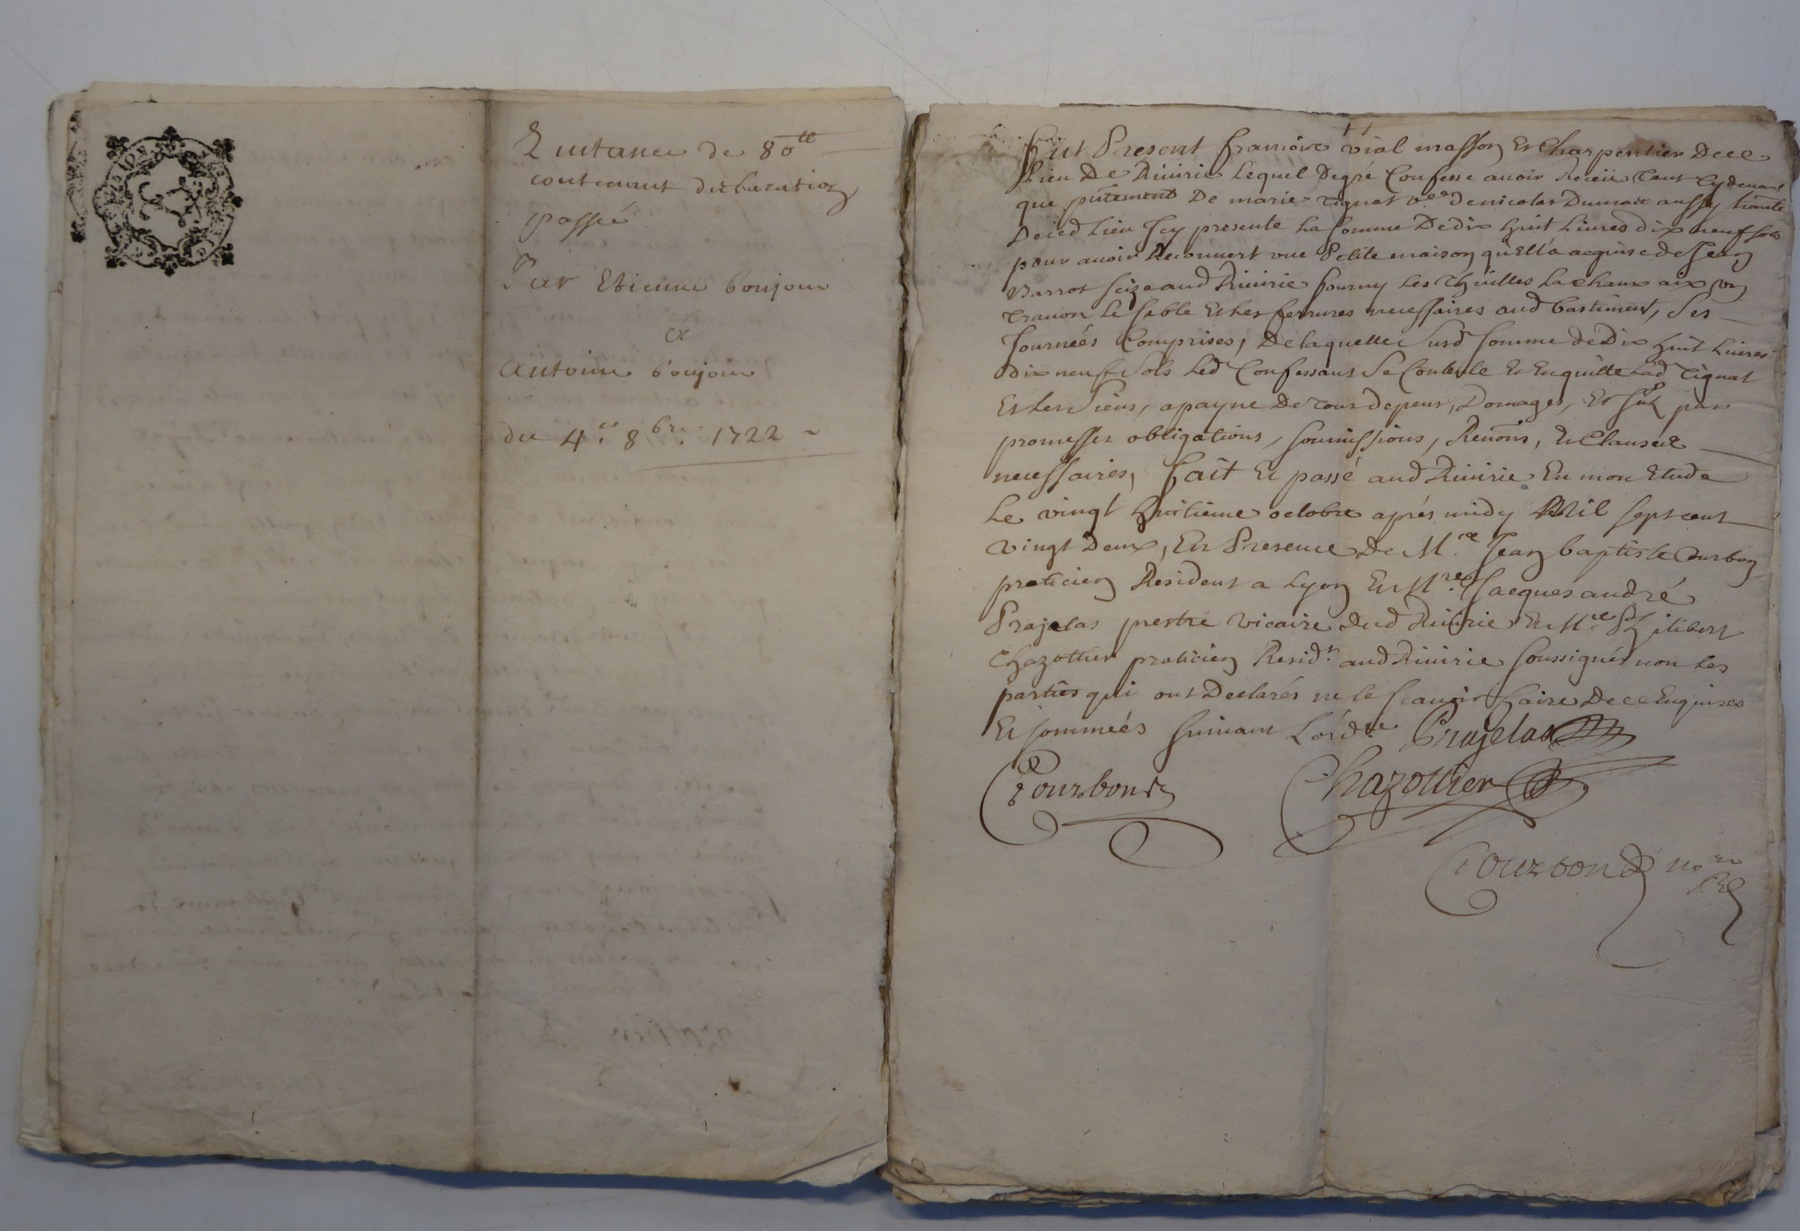 Quittance de 80 ltt
contenant declaration
passé
Par Etienne bonjour
et
Antoine bonjour
du 4.e 8bre. 1722
fut Present françois vial masson Et Charpentier de ce
Lieu De Riuirie Lequel Degré Confesse auoir Receü tant cydeuant
que p̃ntement De marie tignat v.e de nicolas Dumait aussy
Dud Lieu Icy presente La somme De dix huit Liures dix neuf sols
pour auoir Recouuert une Petite maison quell'a acquise de Jean
Barrot size aud Riuirie fourny les thuilles La Chaux aix un
trauon Le sable Et les ferrures necessaires aud bastiment, Ses
Journeés Comprises, De laquelle susd somme de Dix huit Liures
dix neuf sols Led Confessant Se Contente Et Enquitte Lad tignat
Et les siens, apayne De tous depens, Domages, Et par
promesses obligations, soumissions, Renõns, Et Clauses
necessaires, fait Et passé aud Riuirie En mon Etude
Le vingt huitieme octobre aprés midy Mil sept cent
vingt Deux, En Presence De M.e Jean baptiste Courbon
praticien Resident a Lyon Et M.re Jacques andré
Prajelas prestre vicaire dud Riuirie Et M.re Philibert
Chazottier praticien Resid.t aud Riuirie soussignés non Les
parties qui ont Declarés ne le scauoir faire De ce Enquises
Et sommeés suiuant Lordre Prajelas
Courbon Chazottier
Courbon no.re